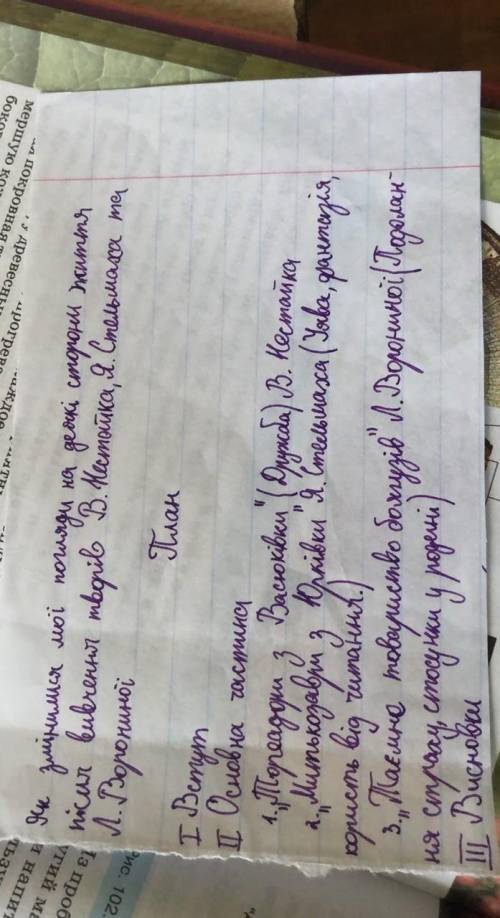 Як змінилися мої погляди на деякі сторони життя
після вивчення творів В. Нестайка, Я. Стельмаха та
Л. Ворониної
План
I Вступ
II Основна частина
1. „Тореадори з Васюківки" (Дружба) В. Нестайка
2. „Митькозаври з Юрківки" Я. Стельмаха (Уява, фантазія,
користь від читання.)
3. „Таємне товариство боягузів" Л. Ворониної (Подолан-
ня страху, стосунки у родині)
III Висновки
Рис. 102.